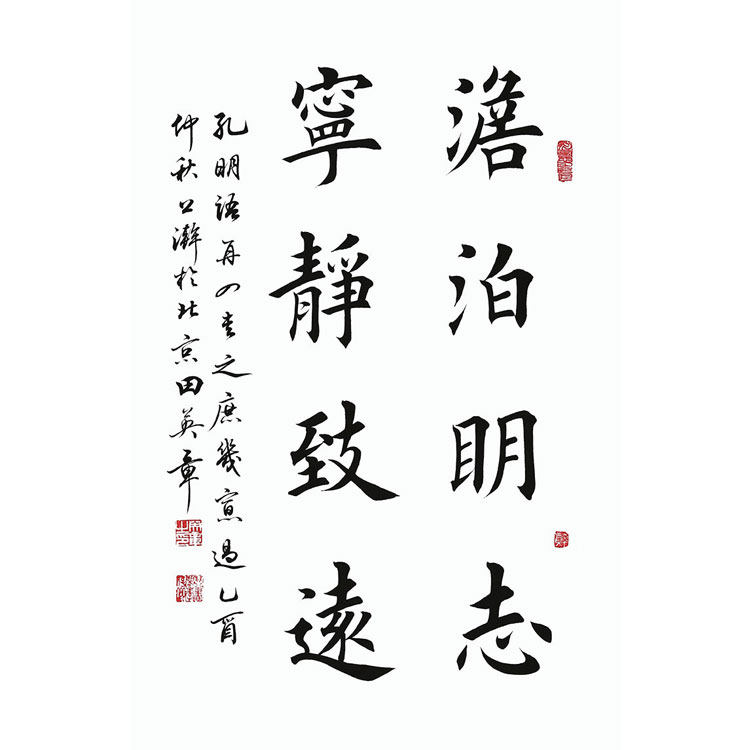 澹泊明志
寧靜致遠
孔明語再四書之庶幾寡過乙酉
仲秋上澣於北京田英章